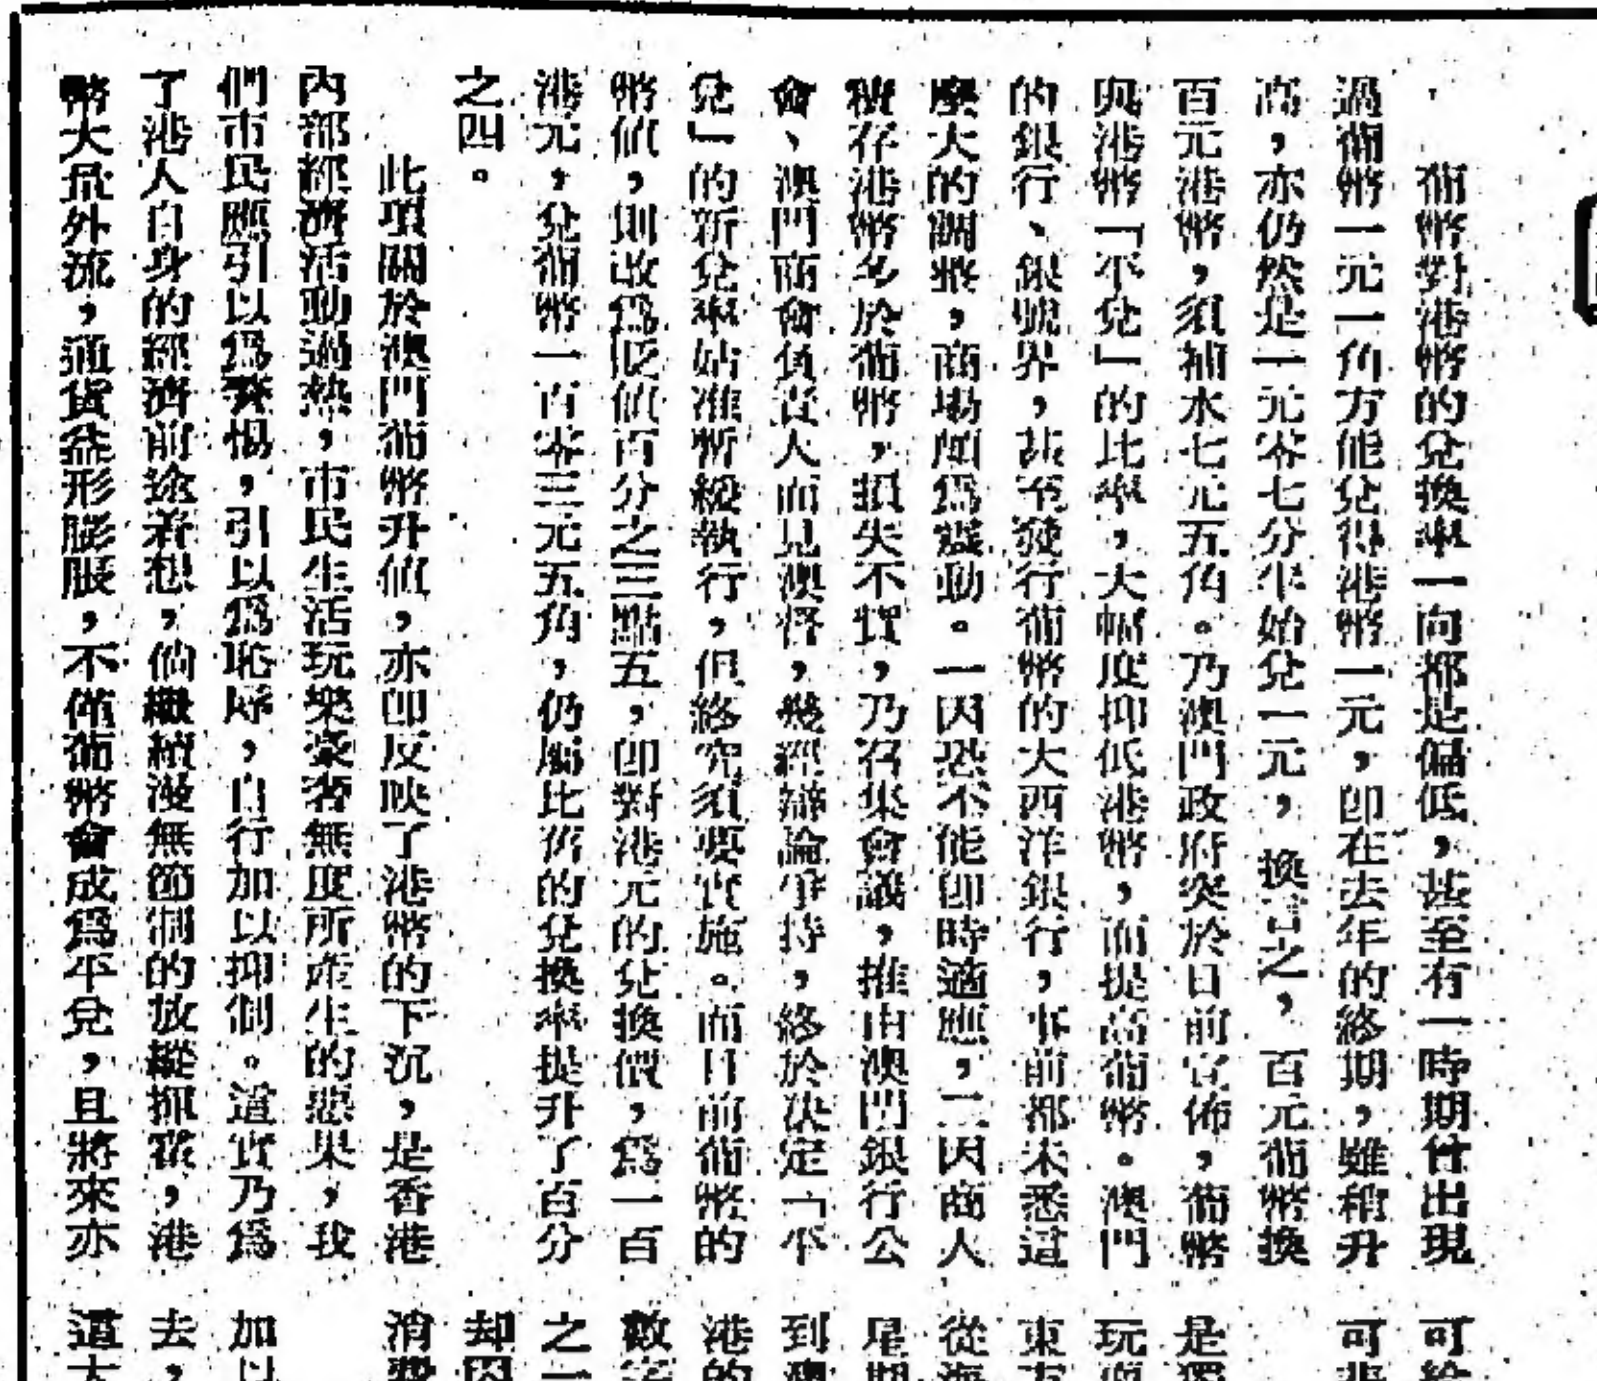 葡幣對港幣的兌換率一向都是偏低，甚至有一時期曾出現
過葡幣一元一角方能兌得港幣一元，卽在去年的終期，雖稍升
高，亦仍然是一元零七分半始兌一元，換言之，百元葡幣換
百元港幣，須補水七元五角。乃澳門政府突於日前宣佈，葡幣
與港幣「平兌」的比率，大幅度抑低港幣，而提高葡幣。澳門
的銀行、銀號界，甚至發行葡幣的大西洋銀行，事前都未悉這
麼大的調整，商場頗爲震動。一因恐不能卽時適應，二因商人
積存港幣多於葡幣，損失不貲，乃召集會議，推由澳門銀行公
會、澳門商會負責人而見澳督，幾經辯論爭持，終於决定「平
兌」的新兌率姑准暫緩執行，但終究須要實施。而目前葡幣的
幣值，則改爲貶值百分之三點五，卽對港元的兌換價，爲一百
港元，兌葡幣一百零三元五角，仍屬比舊的兌換率提升了百分
之四。
此項關於澳門葡幣升值，亦卽反映了港幣的下沉，是香港
內部經濟活動過熱，市民生活玩樂豪奢無度所產生的惡果，我
們市民應引以爲警惕，引以爲恥辱，自行加以抑制。這實乃爲
了港人自身的經濟前途着想，倘繼續漫無節制的放縱揮霍，港
幣大量外流，通貨益形膨脹，不僅葡幣會成爲平兌，且將來亦
可給
可非
是獨
玩
東方
從海
星期
到澳
港的
數字
之一
却因
消費
加以
去，
這大